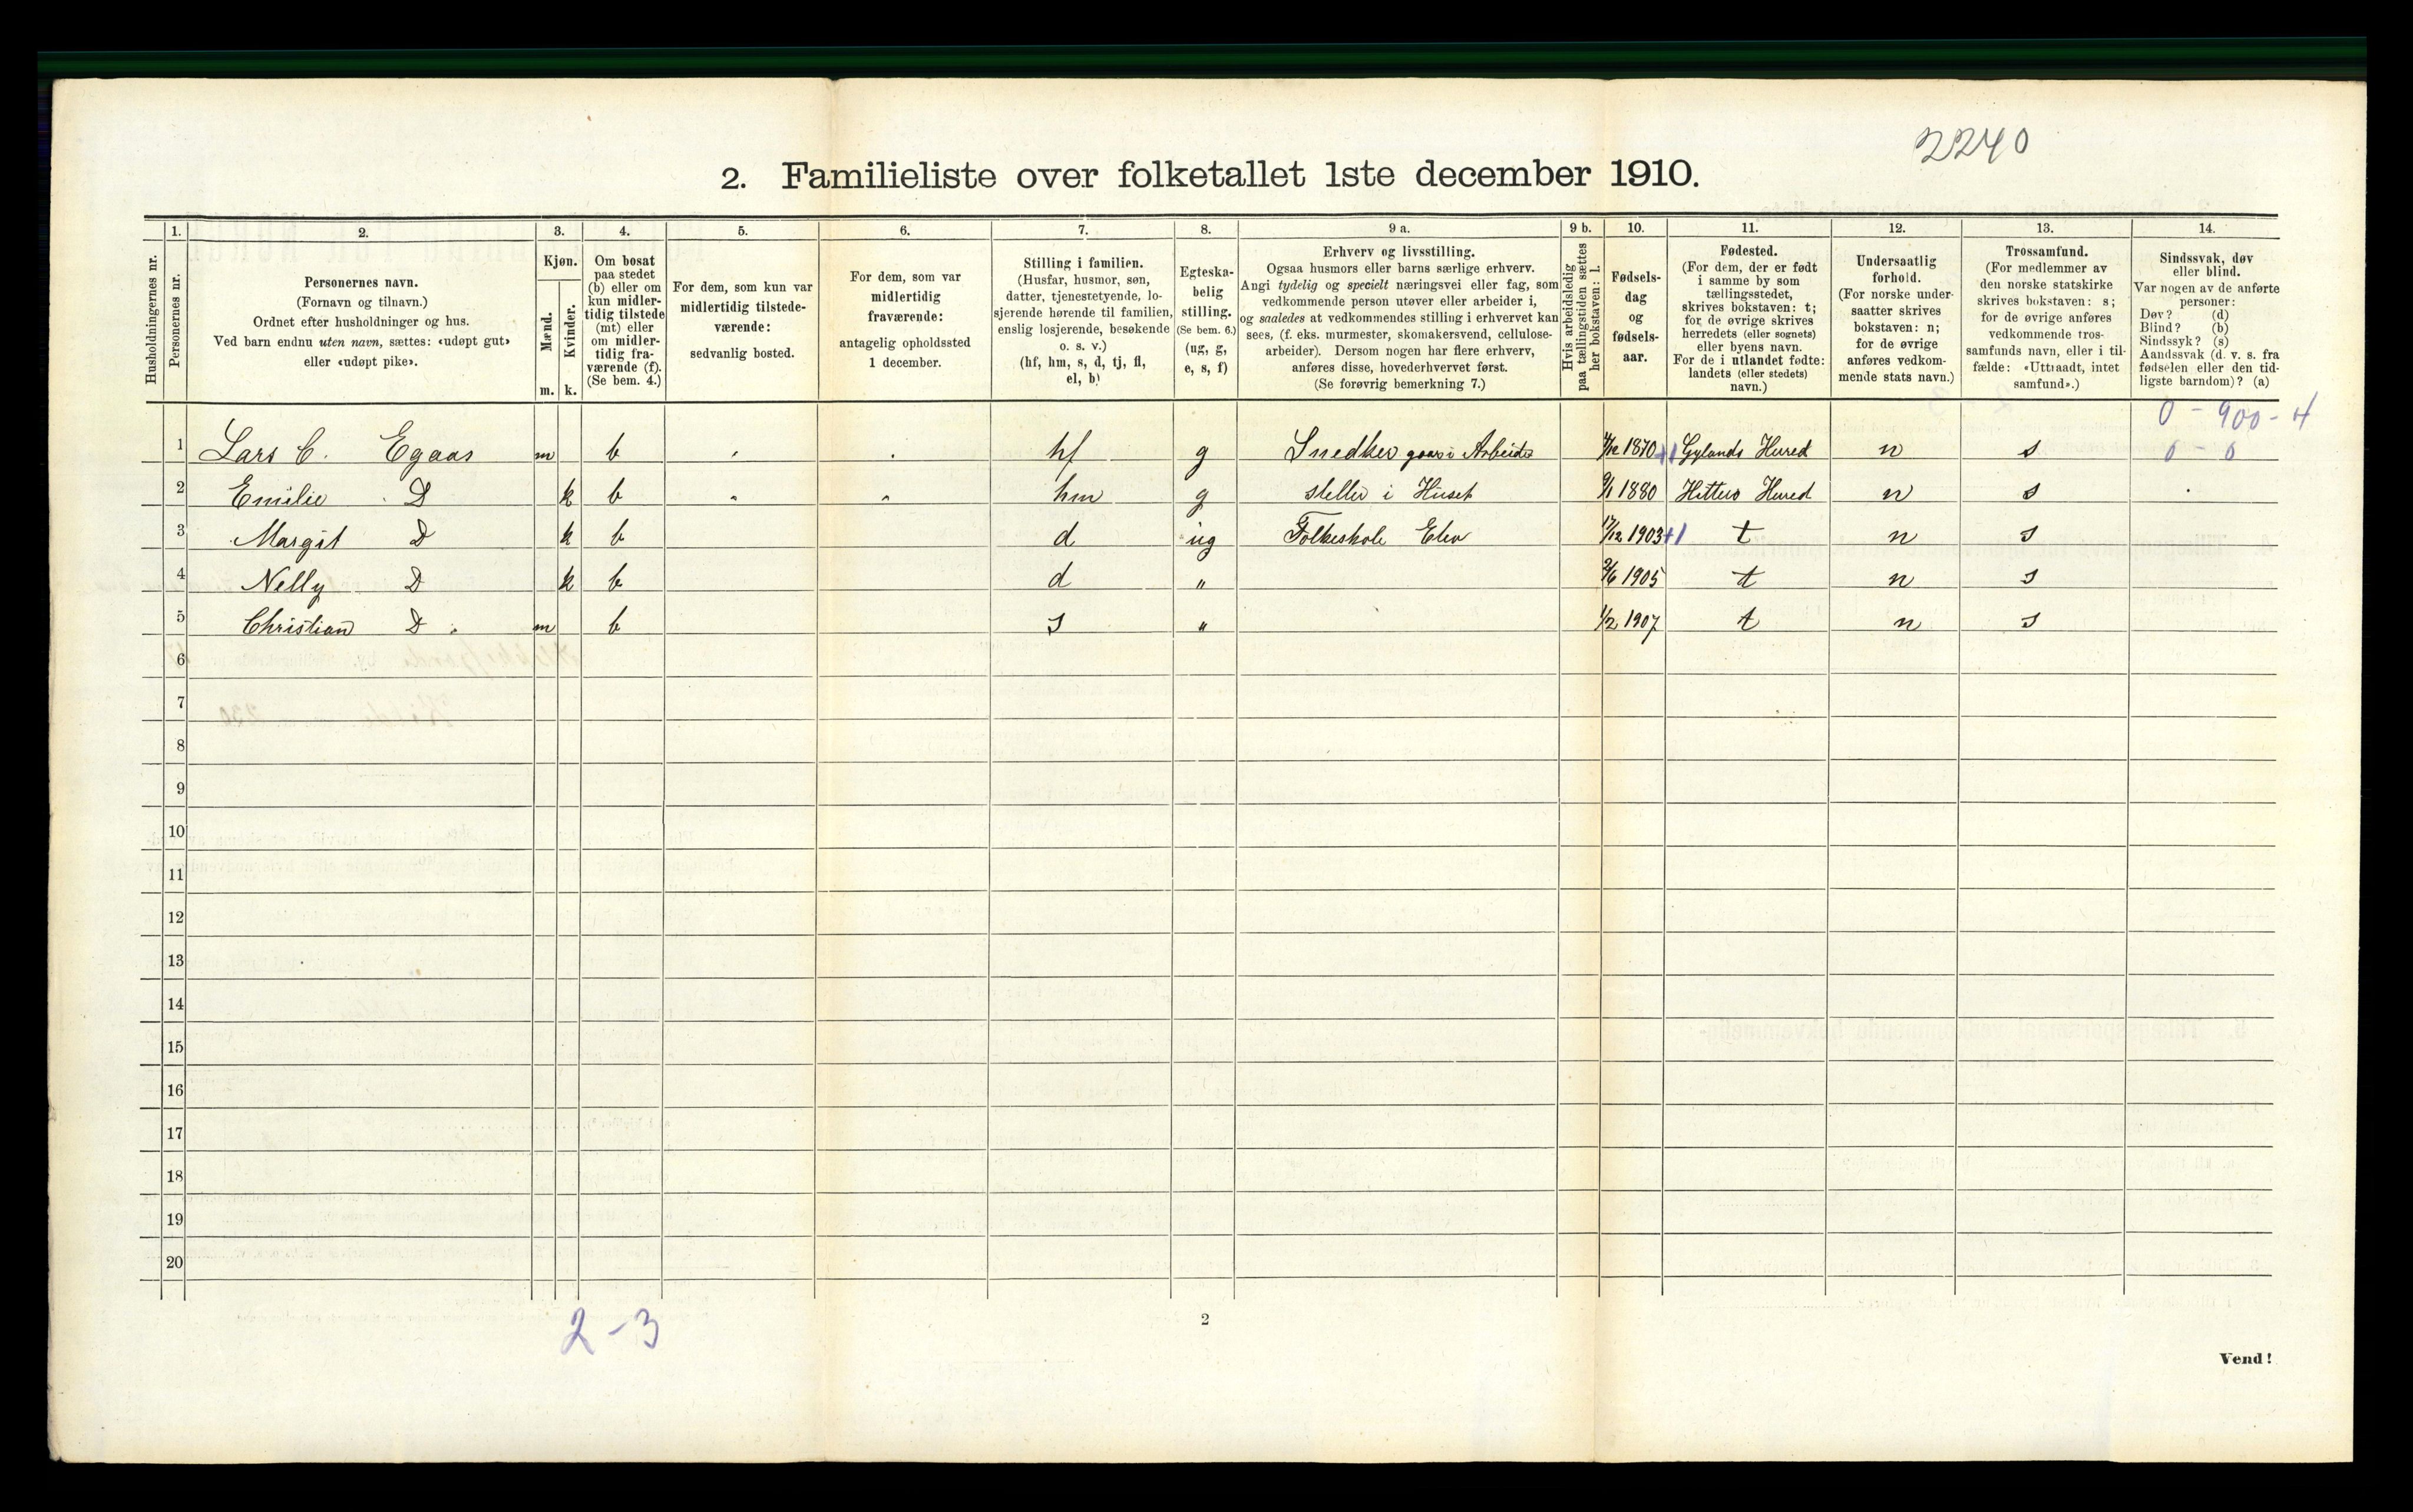 2240
2. Familieliste over folketallet 1ste december 1910.
1. 2. 3. 4. 5. 6. 7. 8. 9 a. 9 b. 10. 11. 12. 13. 14.
Husholdningernes nr.
Personernes nr.
Personernes navn.
(Fornavn og tilnavn.)
Ordnet efter husholdninger og hus.
Ved barn endnu uten navn, sættes: «udøpt gut»
eller «udøpt pike».
Kjøn.
Mænd.
m.
Kvinder.
k.
Om bosat
paa stedet
(b) eller om
kun midler-
tidig tilstede
(mt) eller
om midler-
tidig fra-
værende (f).
(Se bem. 4.)
For dem, som kun var
midlertidig tilstede-
værende:
sedvanlig bosted.
For dem, som var
midlertidig
fraværende:
antagelig opholdssted
1 december.
Stilling i familien.
(Husfar, husmor, søn,
datter, tjenestetyende, lo-
sjerende hørende til familien,
enslig losjerende, besøkende
o. s. v.)
(hf, hm, s, d, tj, fl,
el, b)
Egteska-
belig
stilling.
(Se bem. 6.)
(ug, g,
e, s, f)
Erhverv og livsstilling.
Ogsaa husmors eller barns særlige erhverv.
Angi tydelig og specielt næringsvei eller fag, som
vedkommende person utøver eller arbeider i,
og saaledes at vedkommendes stilling i erhvervet kan
sees, (f. eks. murmester, skomakersvend, cellulose-
arbeider). Dersom nogen har flere erhverv,
anføres disse, hovederhvervet først.
(Se forøvrig bemerkning 7.)
Hvis arbeidsledig
paa tællingstiden sættes
her bokstaven: l.
Fødsels-
dag
og
fødsels-
aar.
Fødested.
(For dem, der er født
i samme by som
tællingsstedet,
skrives bokstaven: t;
for de øvrige skrives
herredets (eller sognets)
eller byens navn.
For de i utlandet fødte:
landets (eller stedets)
navn.)
Undersaatlig
forhold.
(For norske under-
saatter skrives
bokstaven: n;
for de øvrige
anføres vedkom-
mende stats navn.)
Trossamfund.
(For medlemmer av
den norske statskirke
skrives bokstaven: s;
for de øvrige anføres
vedkommende tros-
samfunds navn, eller i til-
fælde: «Uttraadt, intet
samfund».)
Sindssvak, døv
eller blind.
Var nogen av de anførte
personer:
Døv? (d)
Blind? (b)
Sindssyk? (s)
Aandssvak (d. v. s. fra
fødselen eller den tid-
ligste barndom)? (a)
0 - 900 - 4
1 Lars C. Egaas m b hf g Snedker gaar i Arbeide 4/12 1870 +1 Gylands Hered n s 0 - 0
2 Emilie D k b hm g steller i Huset 9/1 1880 Hitterø Hered n s
3 Margit D k b d ug Folkeskole Elev 17/12 1903 +1 t n s
4 Nelly D k b d " 2/6 1905 t n s
5 Christian D m b s " 1/2 1907 t n s
6
7
8
9
10
11
12
13
14
15
16
17
18
19
20
2 - 3
2
Vend!